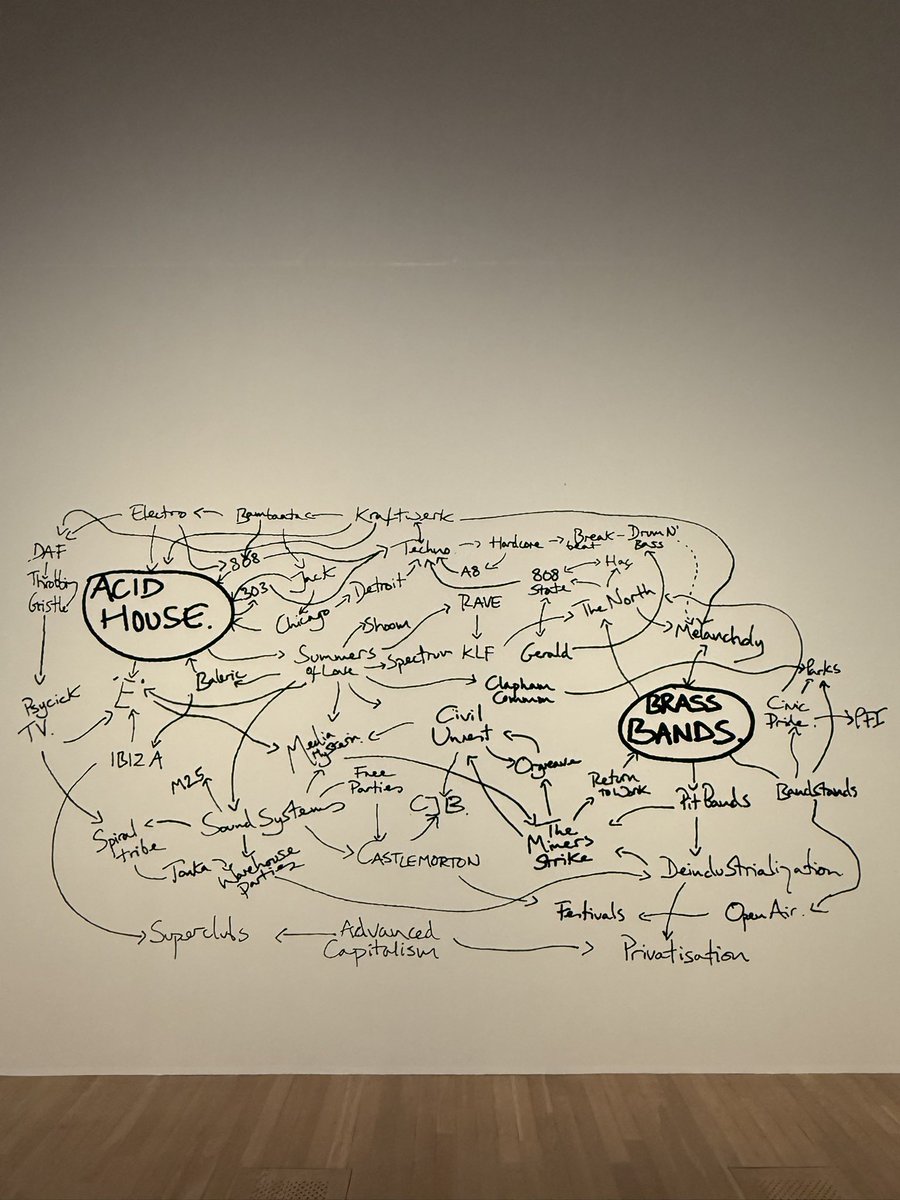 Electro
Bambaata
Kraftwerk
DAF
808
Techno
Hardcore
Break-
beat
Drum N'
Bass
Throbbing
Gristle
ACID
HOUSE.
303
Jack
Detroit
A8
808
State
Has
Chicago
RAVE
The North
Shoom
Melancholy
Summers
of Love
Spectrum
KLF
Gerald
Parks
Baleric
'E'.
Clapham
Common
BRASS
BANDS.
Civic
Pride.
PFI
Psycick
TV.
Civil
Unrest
Media
Hysteria.
IBIZA
Orgreave
M25
Free
Parties
CJB.
Return
to Work
Pit Bands
Bandstands
Spiral
tribe
Sound Systems
The
Miners
Strike
Tonka
Warehouse
Parties
CASTLEMORTON
Deindustrialization
Festivals
Open Air.
Superclubs
Advanced
Capitalism
Privatisation